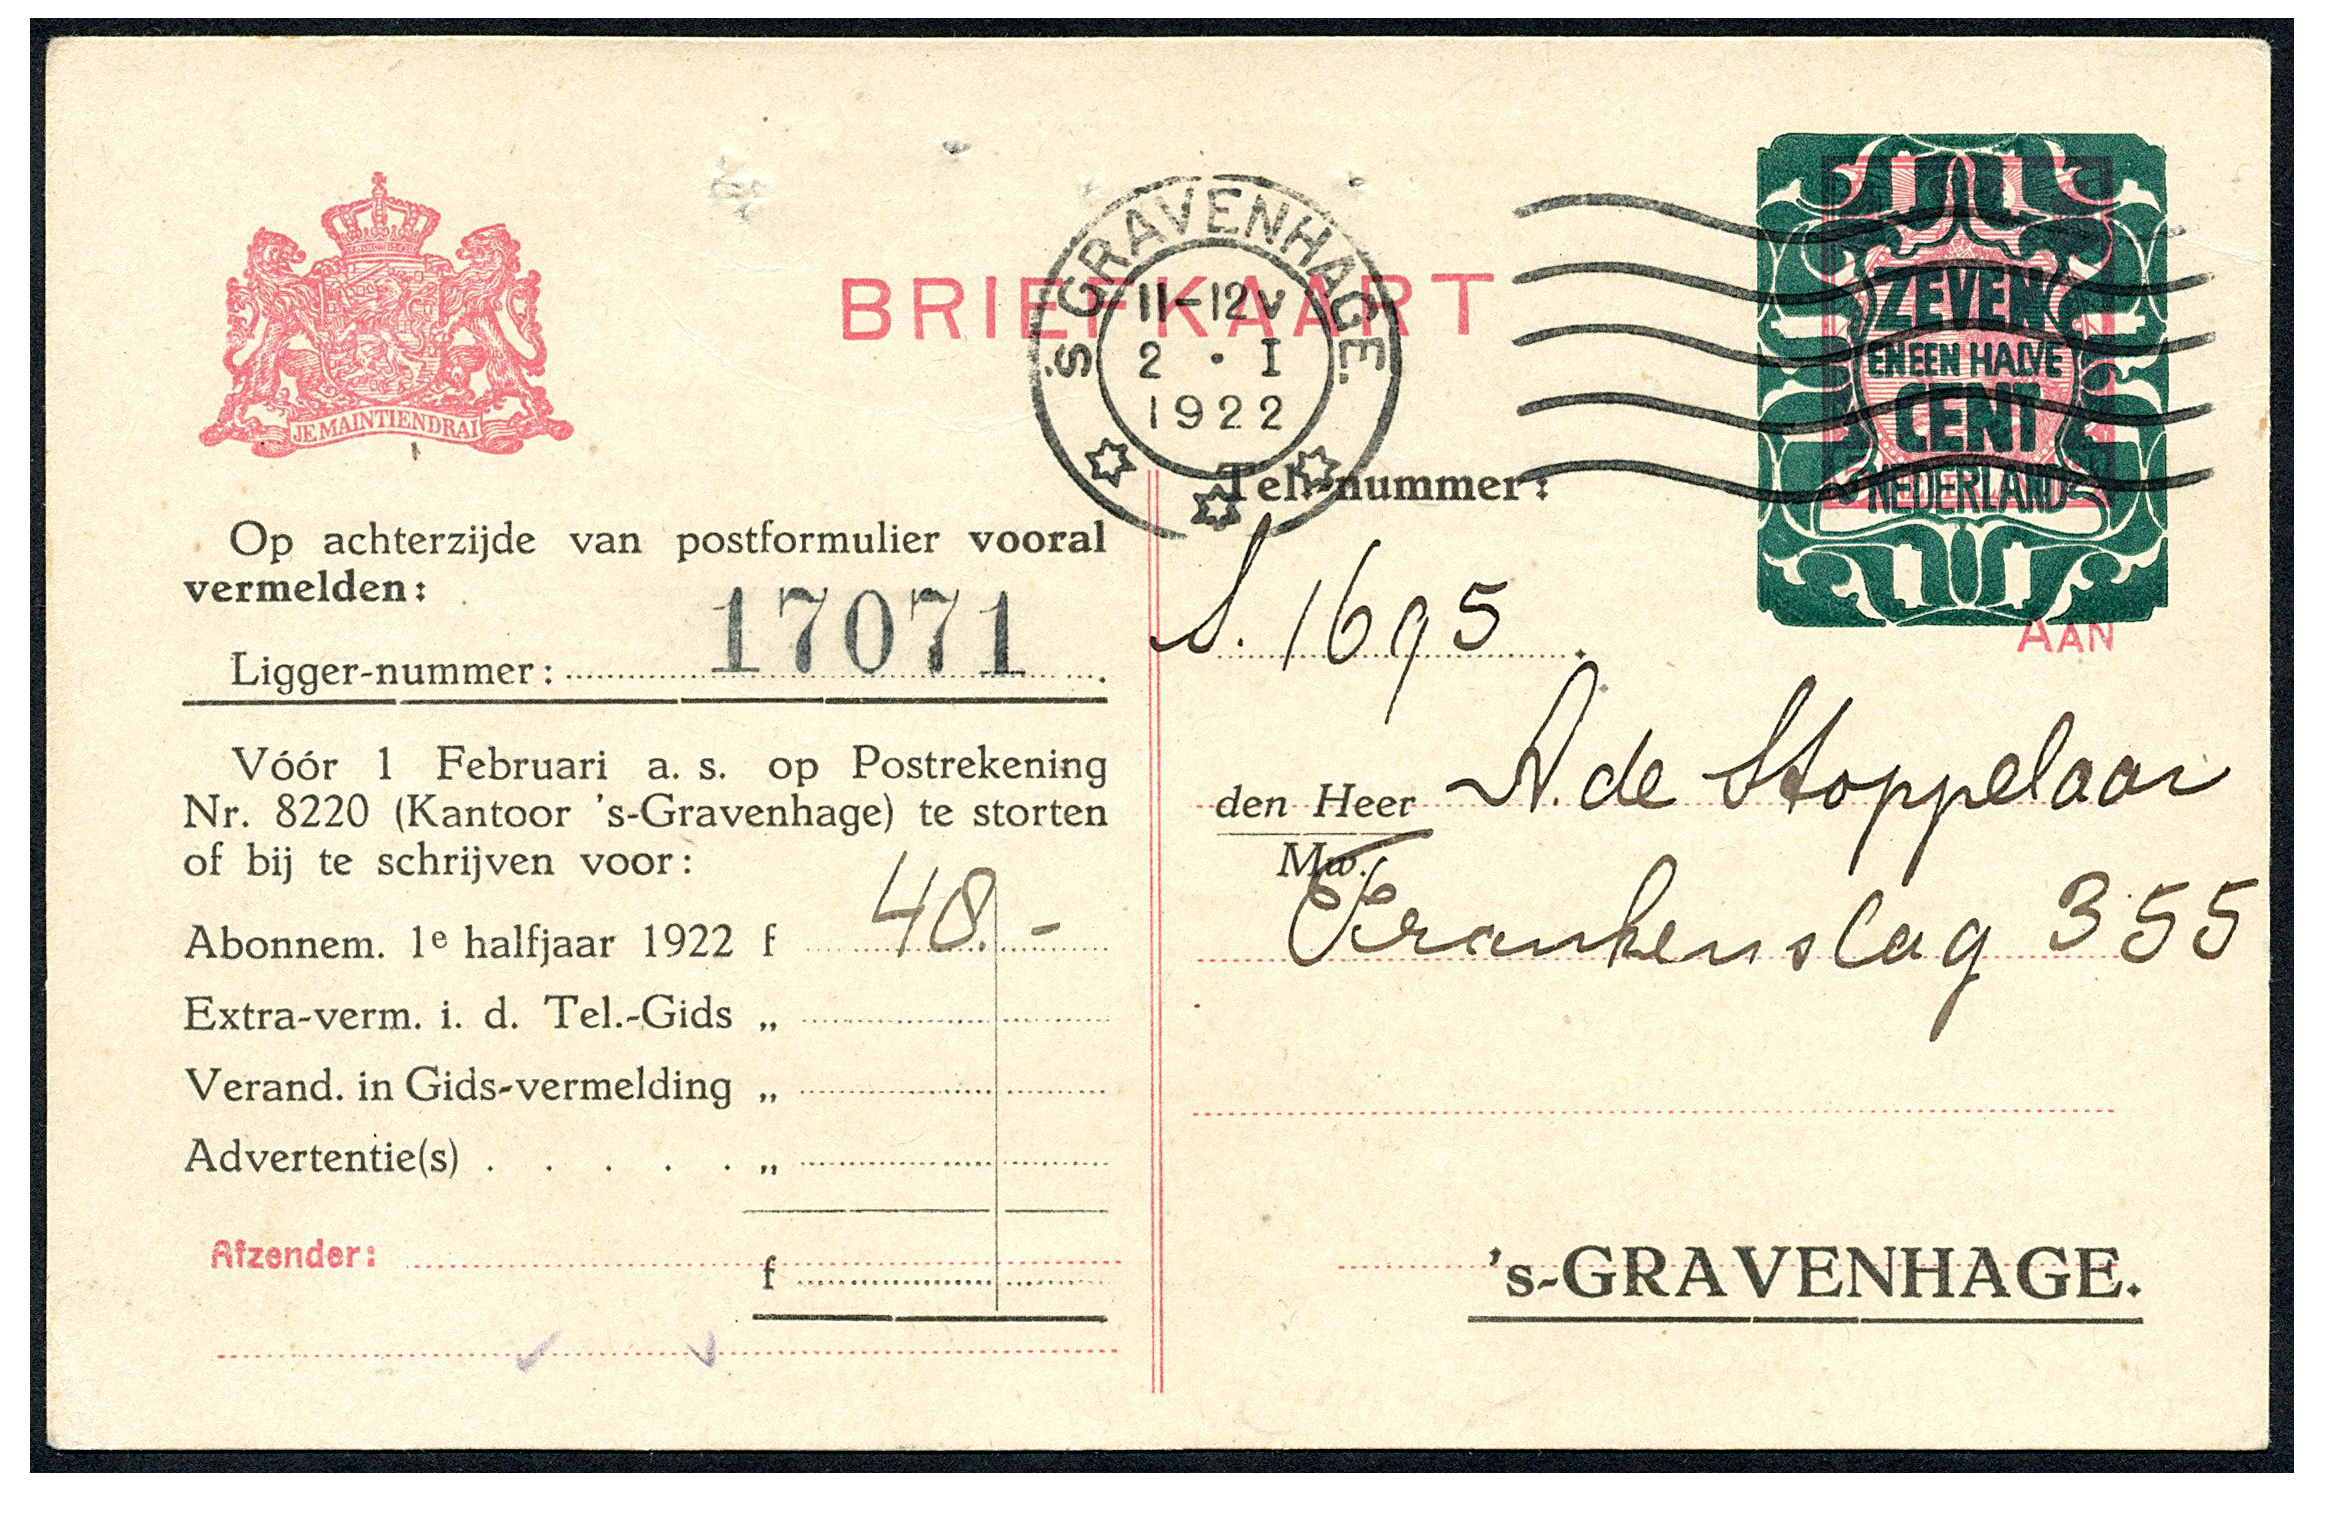 JE MAINTIENDRAI
BRIEFKAART
'S GRAVENHAGE.
11-12V
2 • I
1922
ZEVEN
EN EEN HALVE
CENT
NEDERLAND
AAN
Op achterzijde van postformulier vooral
vermelden:
Ligger-nummer: 17071
Vóór 1 Februari a. s. op Postrekening
Nr. 8220 (Kantoor 's-Gravenhage) te storten
of bij te schrijven voor:
Abonnem. 1e halfjaar 1922 f 48.-
Extra-verm. i. d. Tel.-Gids „
Verand. in Gids-vermelding „
Advertentie(s) . . . . . „
Afzender:
f
Tel.-nummer:
S. 1695
den Heer A. de Stoppelaar
Mw.
Frankenslag 355
's-GRAVENHAGE.